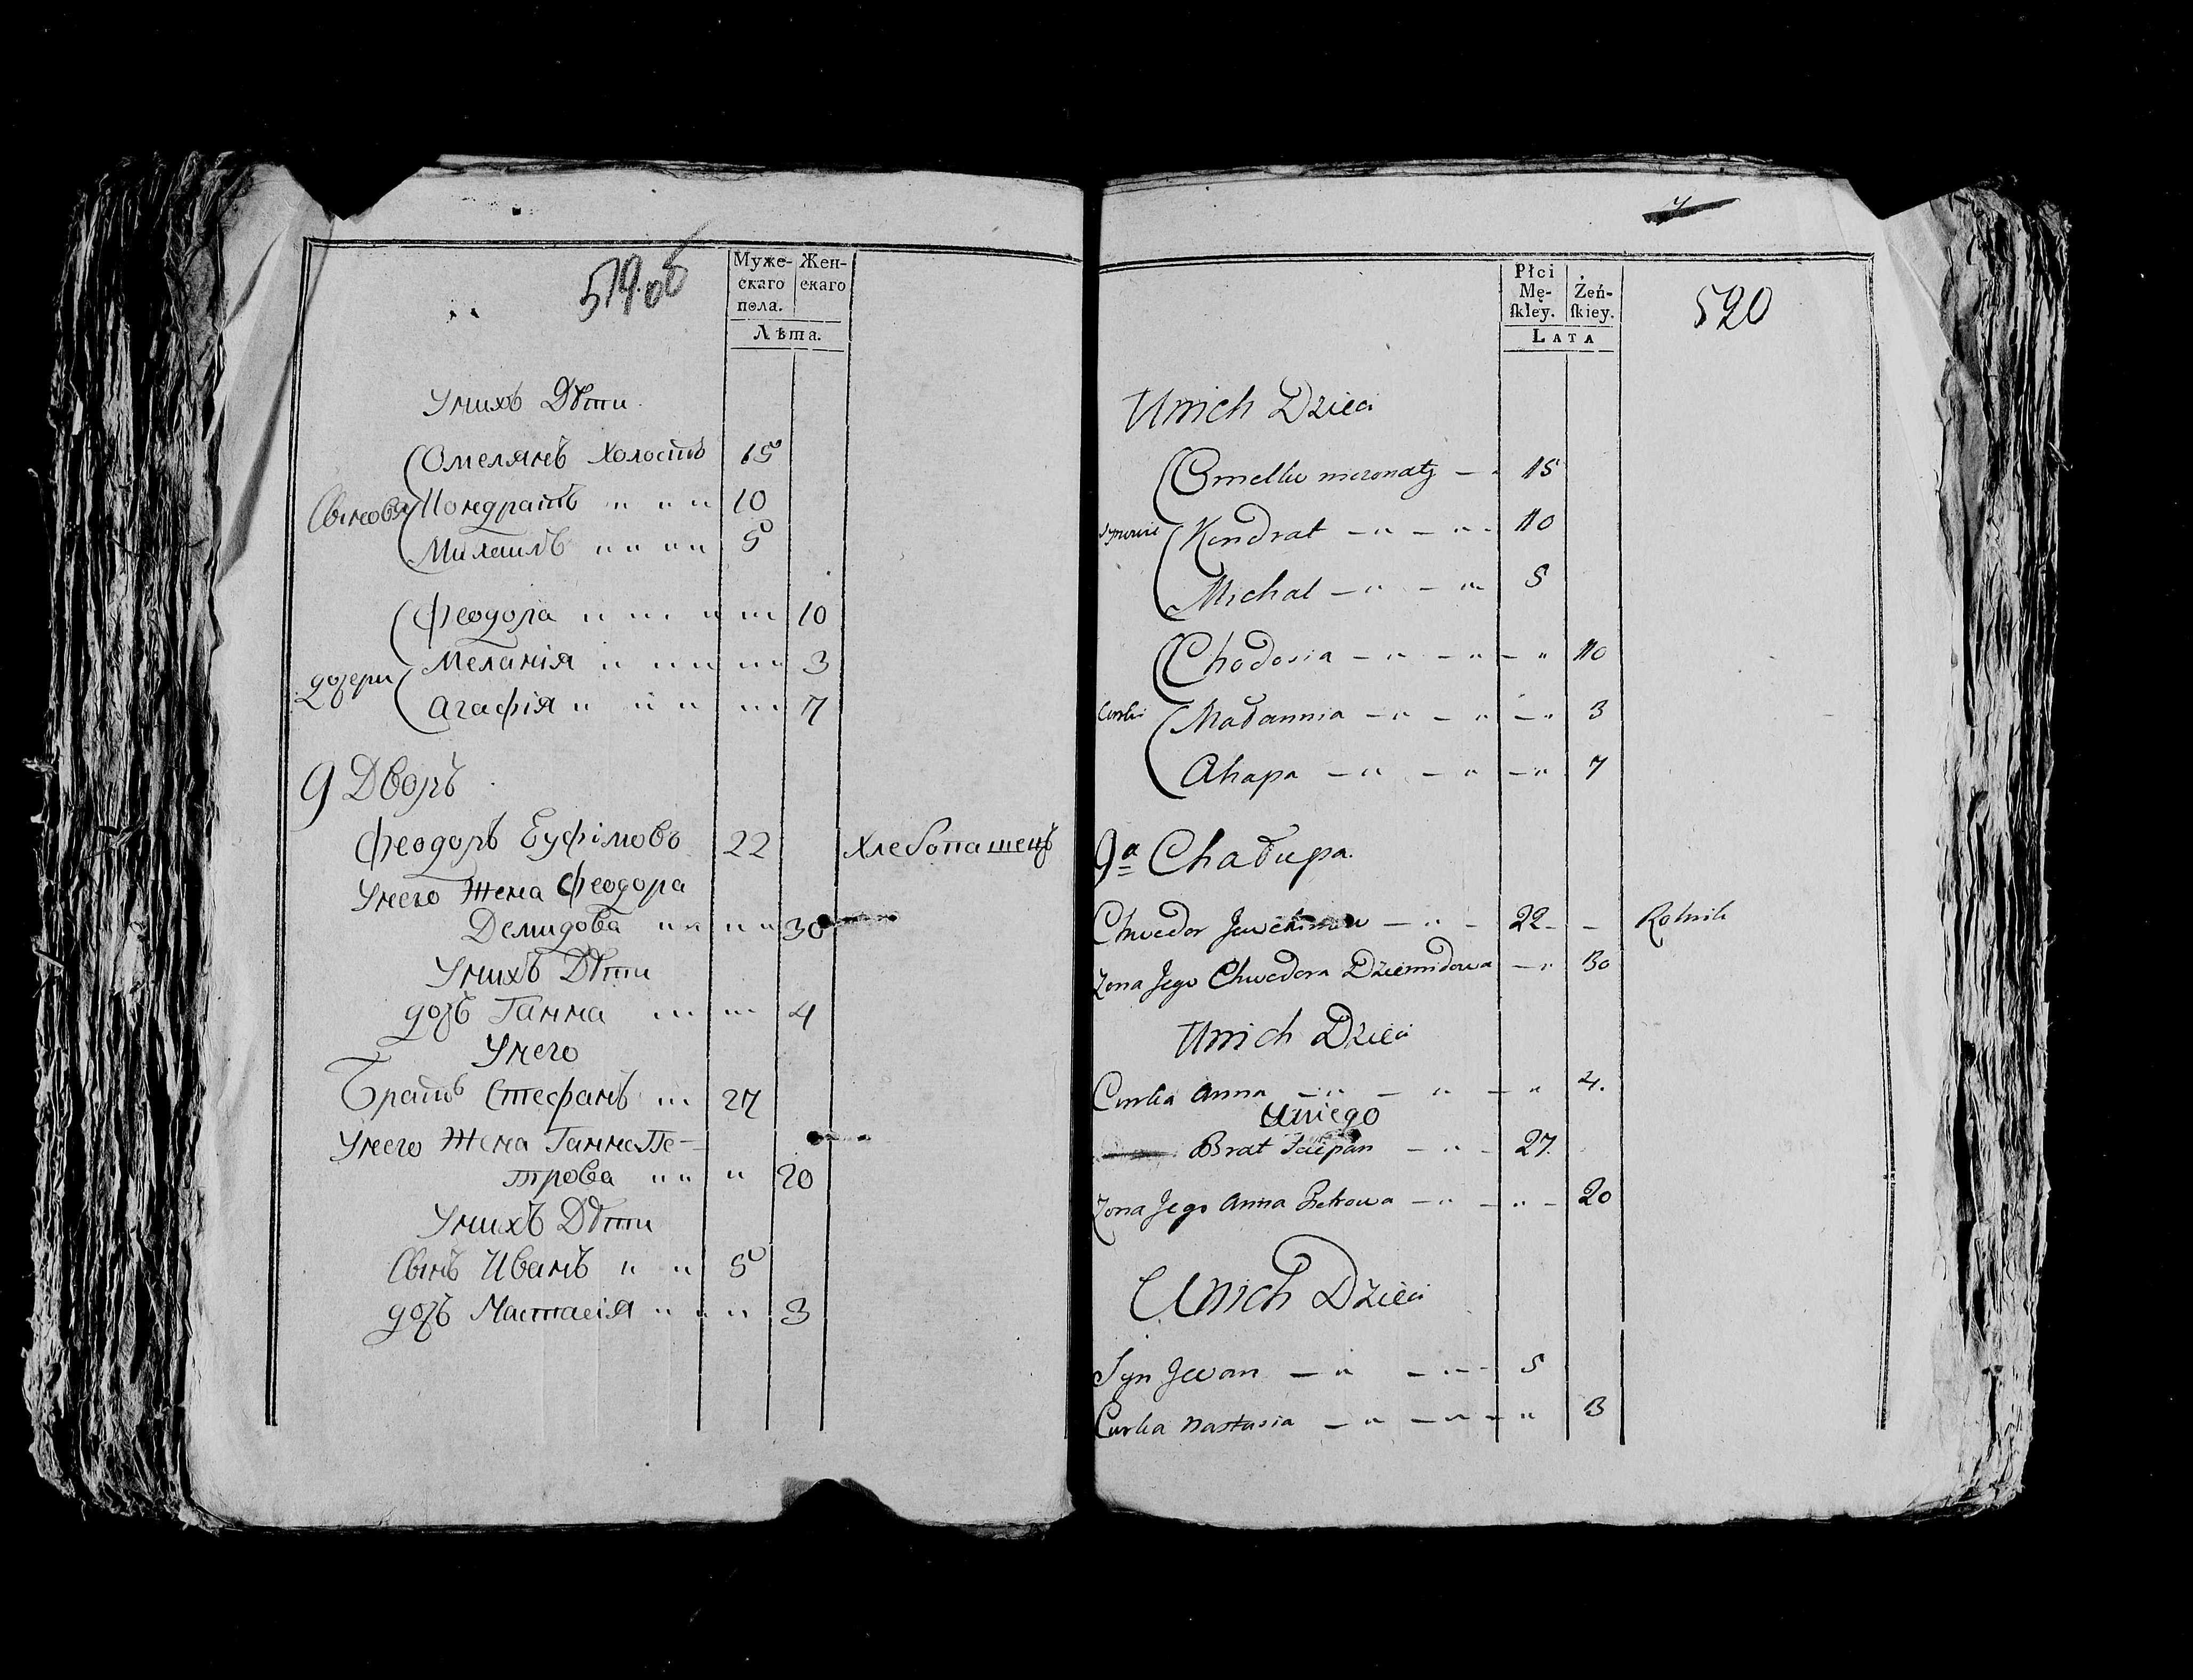 519 об
Муже-
скаго
пола.
Жен-
скаго
Лѣта.
Унихъ Дѣти
Сыновя
Омелянъ Холостъ 15
Кондратъ " " " 10
Михаилъ " " " " 5
дочери
Феодора " " " " 10
Меланія " " " " 3
Агафія " " " " 7
9 Дворъ
Феодоръ Еуфімовъ 22 Хлебопашецъ
Унего Жена Феодора
Демидова " " " " 30
Унихъ Дѣти
дочь Ганна " " 4
Унего
Братъ Стефанъ " 27
Унего Жена Ганна Пе-
трова " " " 20
Унихъ Дѣти
Сынъ Иванъ " " 5
дочь Настасія " " " 3
7
520
Płci
Mę-
ſkiey.
Żeń-
ſkiey.
LATA
Unich Dzieci
Synowie
Omelko niezonaty — 15
Kondrat — " — " - 10
Michał — " — " 5
Curki
Chodosia — " — " — " 10
Małannia — " — " — " 3
Ahapa — " — " — " 7
9a Chałupa.
Chwedor Jewchimow — " — 22 - - Rolnik
Zona Jego Chwedora Dziemidowa — " 30
Unich Dzieci
Curka Anna — " — " — " 4.
Uniego
Brat Sciepan — " — 27.
Zona Jego Anna Pietrowa — " — " — 20
Unich Dzieci
Syn Jwan — " — " - 5
Curka Nastasia — " — " — " 3